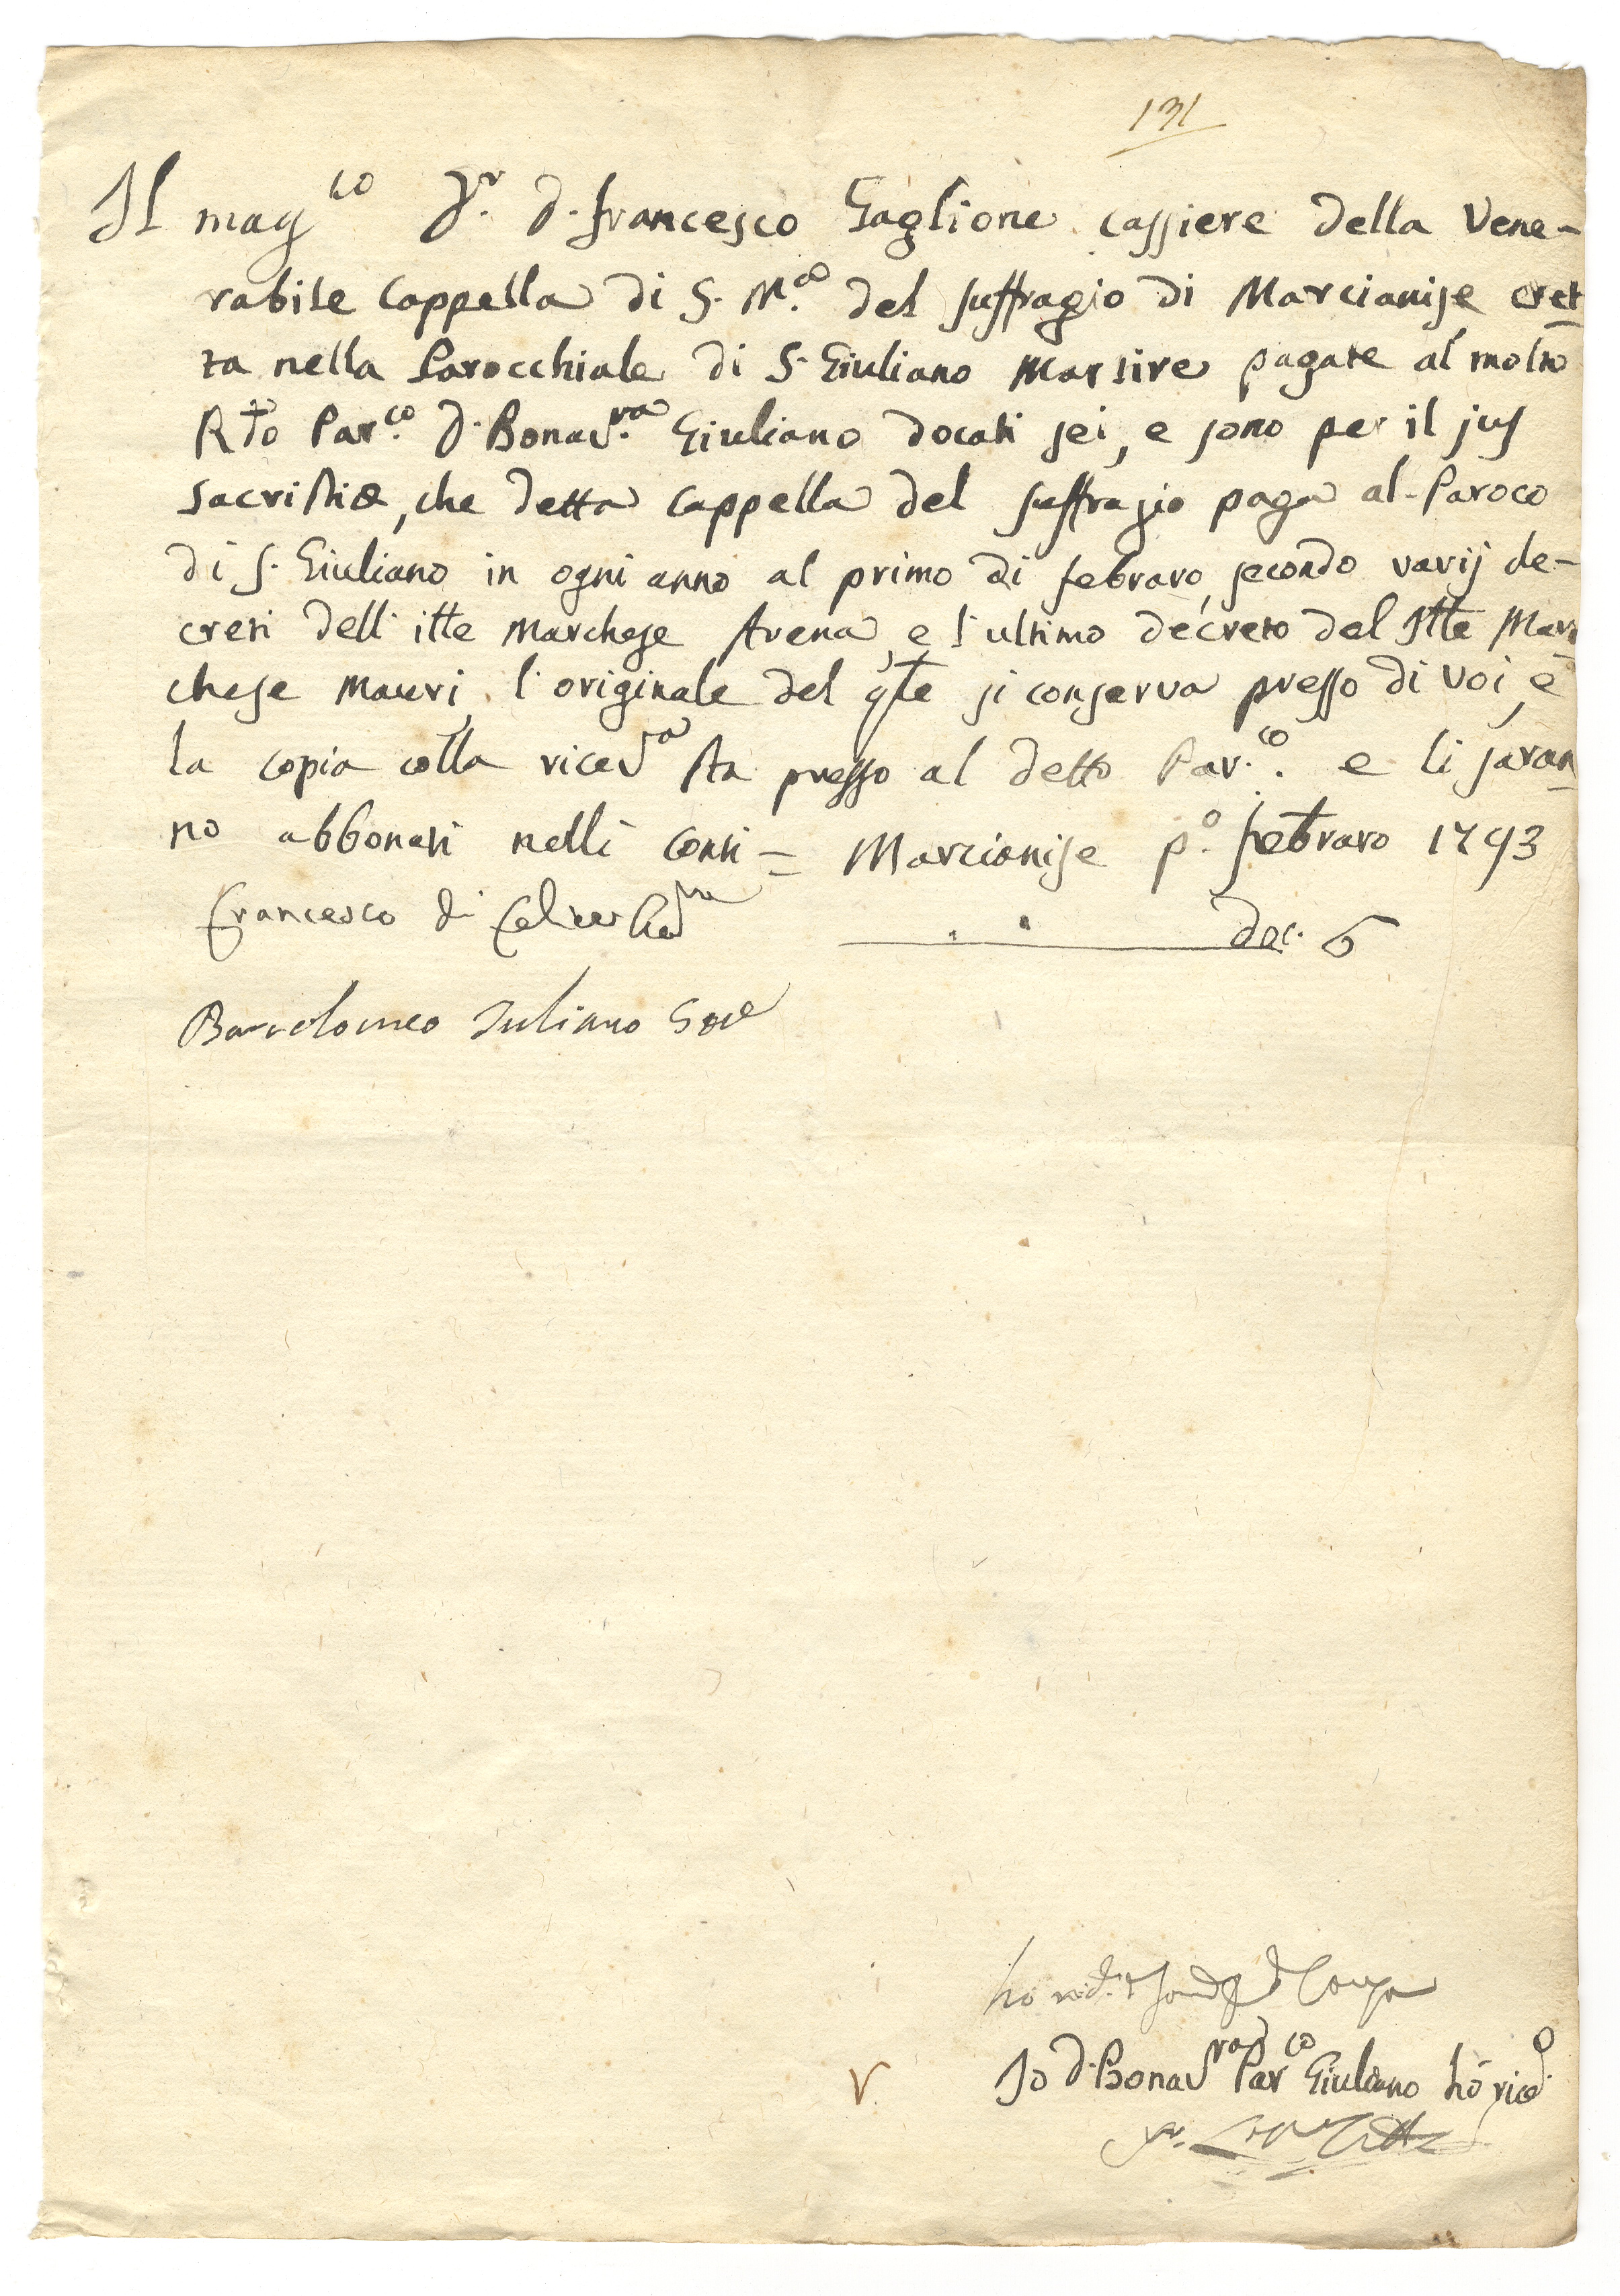 131
Il mag.co D.r D. Francesco Gaglione cassiere della Vene-
rabile Cappella di S. M.a del suffragio di Marcianise eret-
ta nella Parocchiale di S. Giuliano Martire pagate al molto
R.do Par.co D. Bonav.ra Giuliano docati sei, e sono per il jus
sacristiæ, che detta Cappella del suffragio paga al Paroco
di S. Giuliano in ogni anno al primo di febraro, secondo varij de-
creti dell' Ill.e Marchese Avena, e l'ultimo decreto del Ill.e Mar-
chese Mauri, l'originale del q.le si conserva presso di voi, e
la copia colla ricev.a sta presso al detto Par.co. e li saran-
no abbonati nelli conti = Marcianise p.o febraro 1793
Francesco di
doc. 6
Bartolomeo Iuliano
ho
Io D. Bonav.ra Par.co Giuliano hó ricev.o
V.